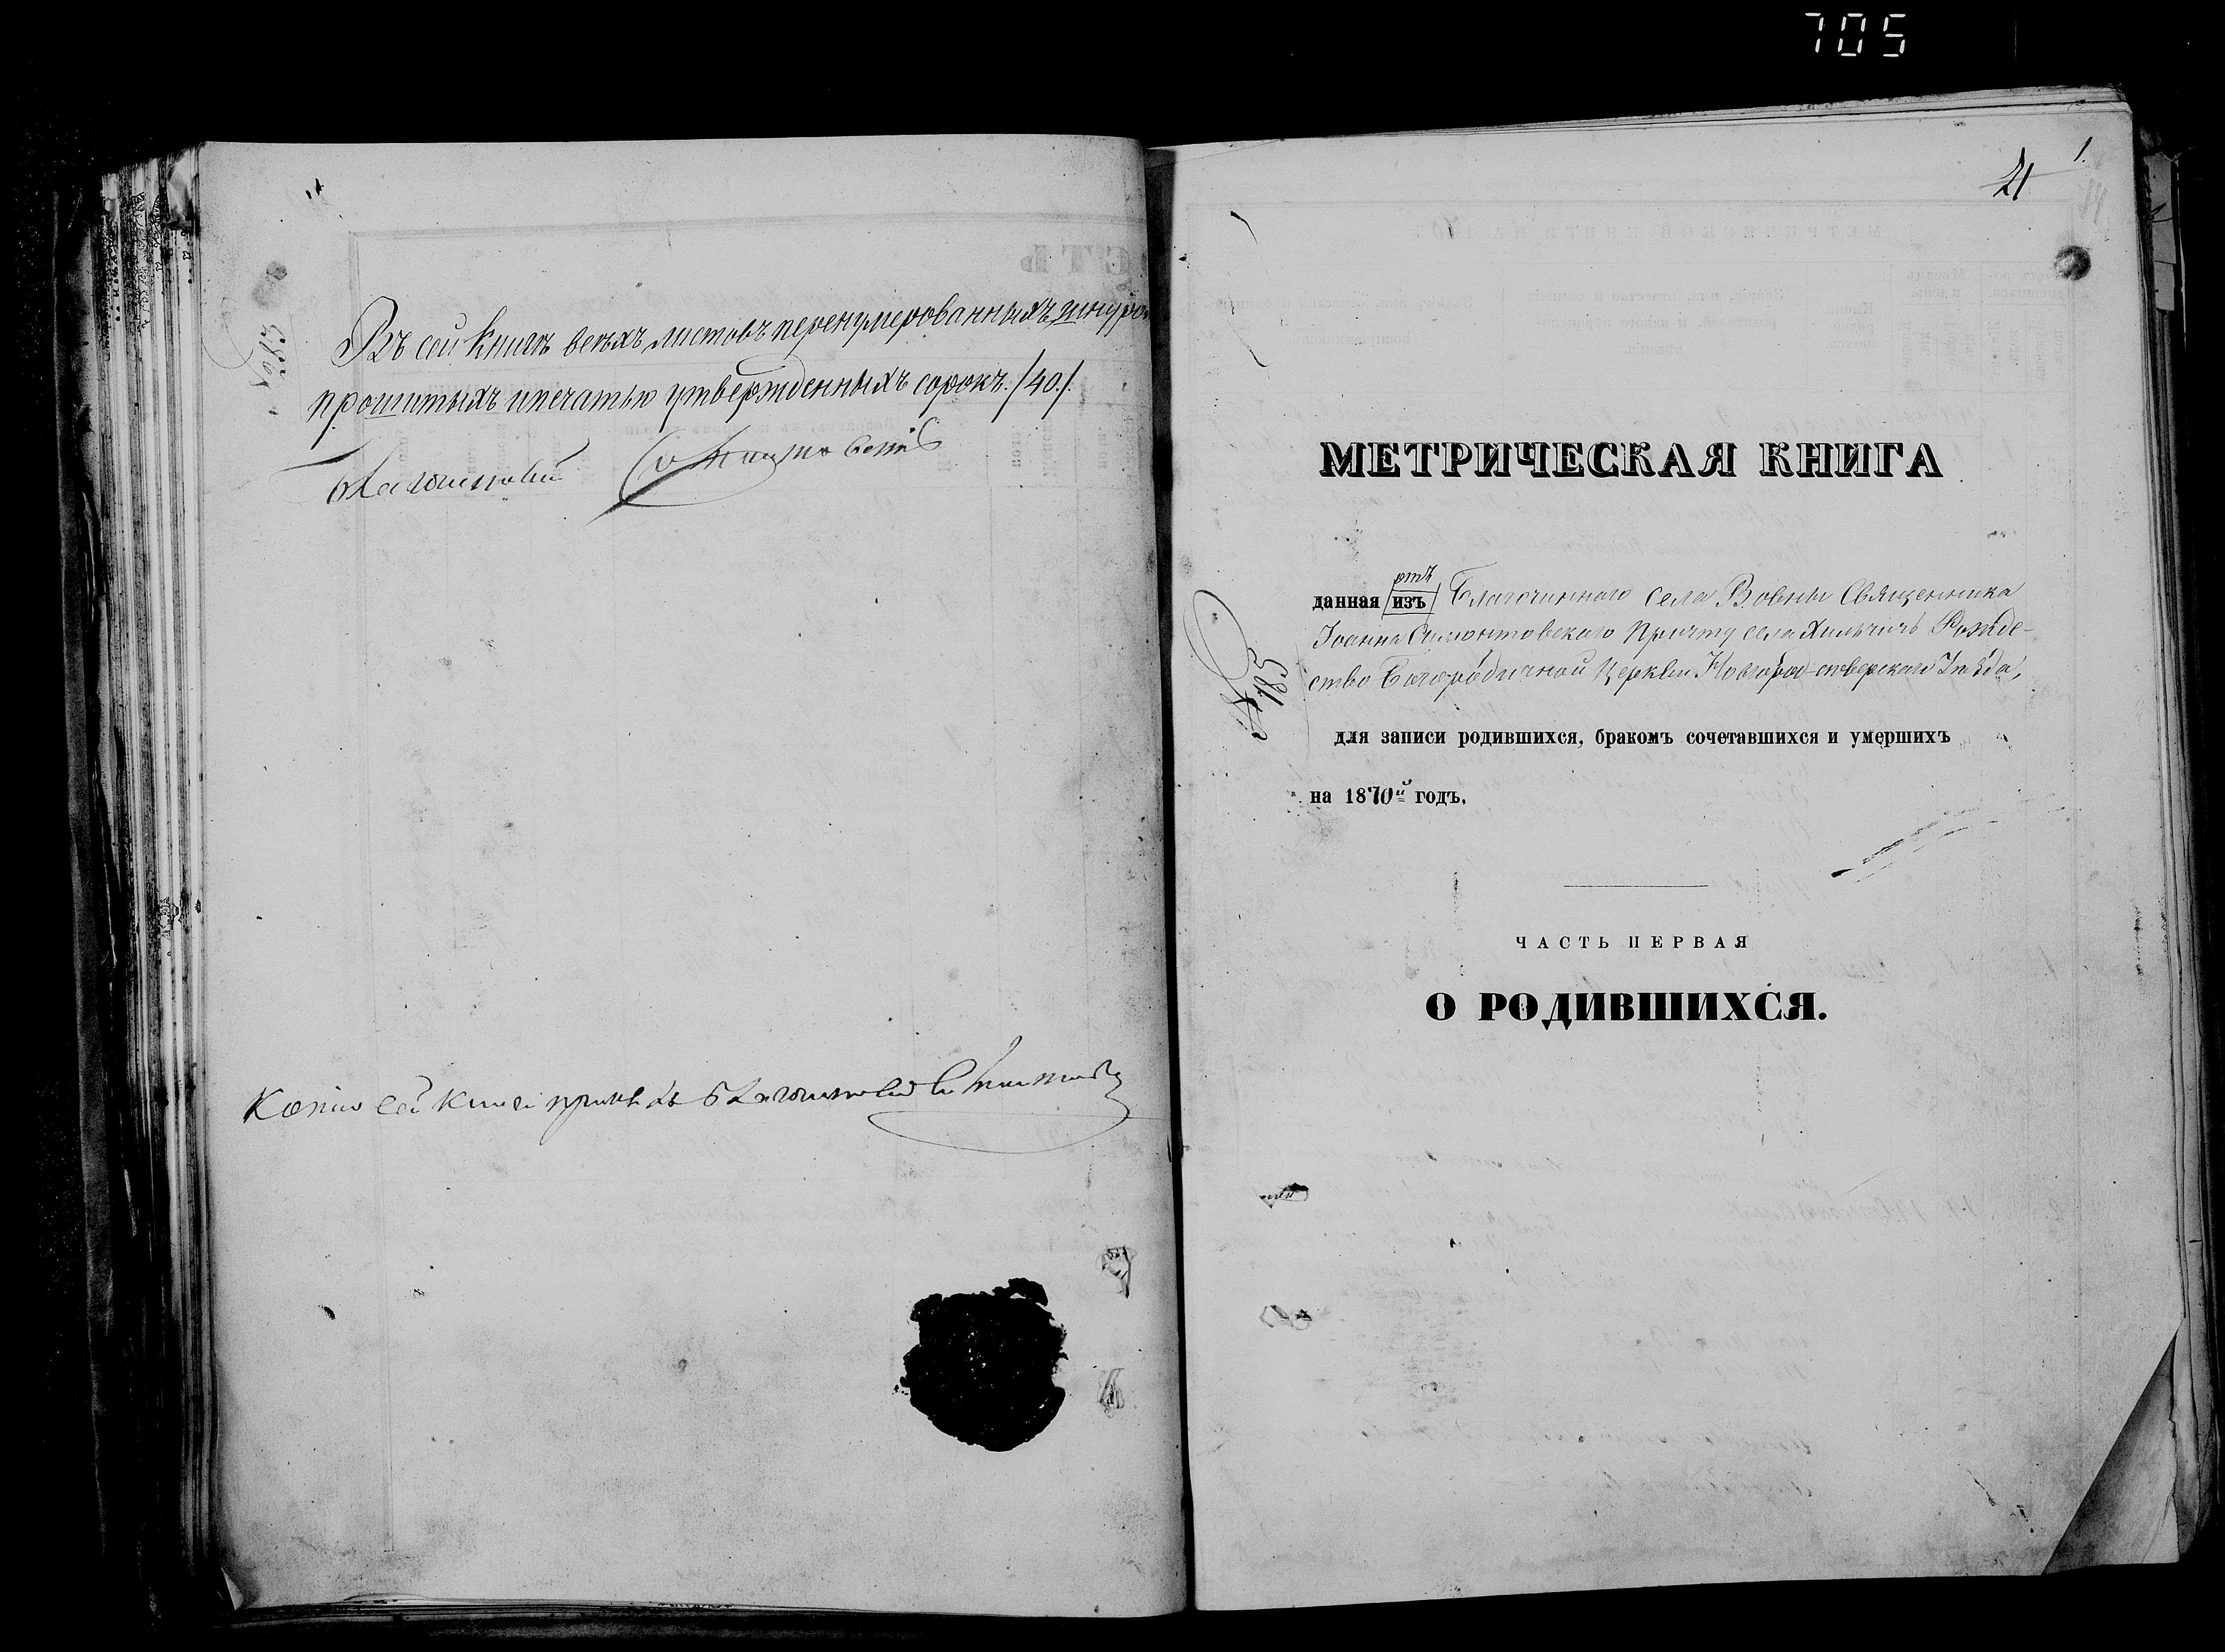 705
Въ сей книгѣ всѣхъ листовъ перенумерованныхъ шнуро
прошитыхъ и печатью утвержденныхъ сорокъ. /40/.
Благочинный Симонтовскій
Копію сей книги принялъ Благочинный
21
1.
МЕТРИЧЕСКАЯ КНИГА
отъ
данная изъ Благочиннаго села Вовны Священника
Іоанна Симонтовскаго Причту села Хильчичъ Рожде-
ство Богородичной Церкви Новгород-сѣверскаго Уѣзда,
для записи родившихся, бракомъ сочетавшихся и умершихъ
на 1870й годъ.
ЧАСТЬ ПЕРВАЯ
О РОДИВШИХСЯ.